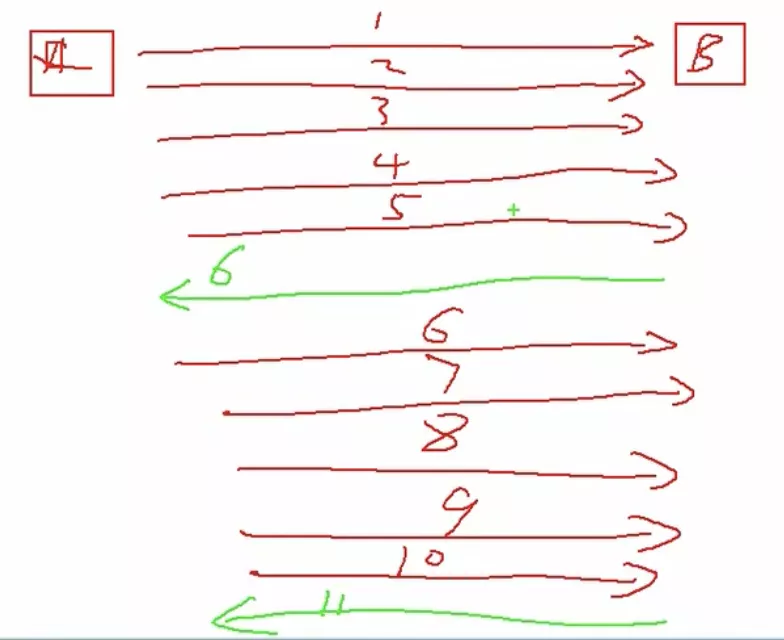 A B
1
2
3
4
5
6
6
7
8
9
10
11